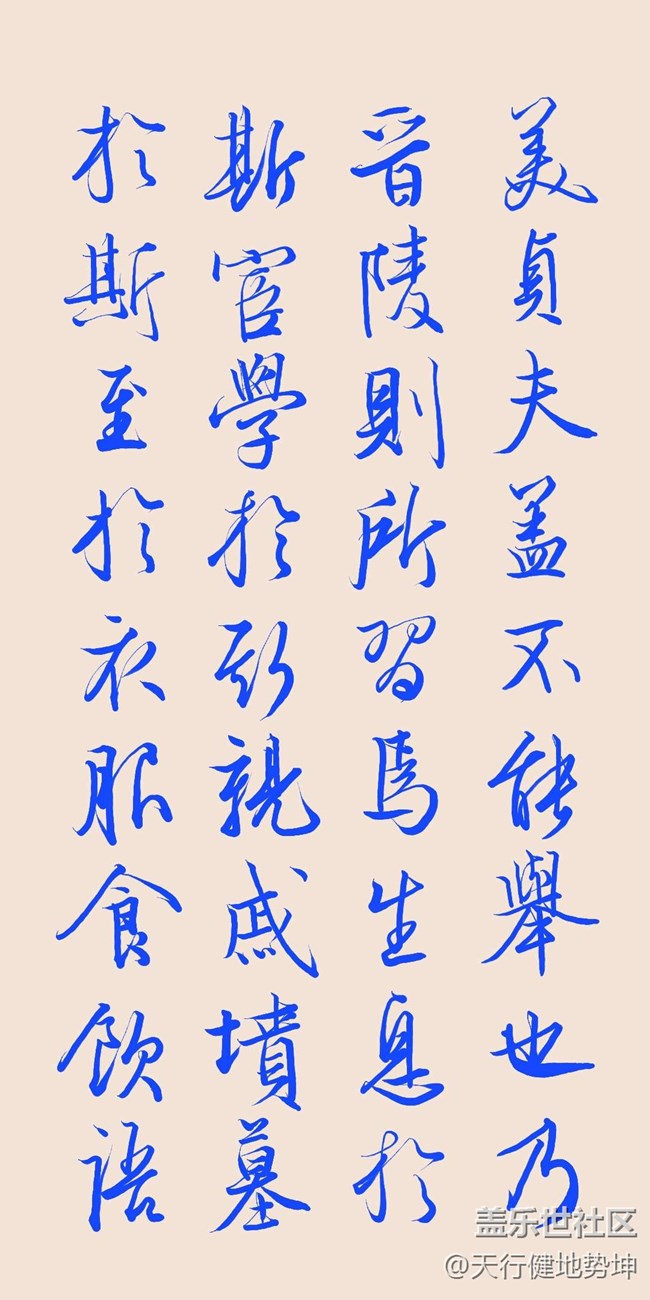 美貞夫盖不能舉也乃
晋陵則所習焉生息於
斯宦學於斯親戚墳墓
於斯至於衣服食飲語
盖乐世社区
@天行健地势坤